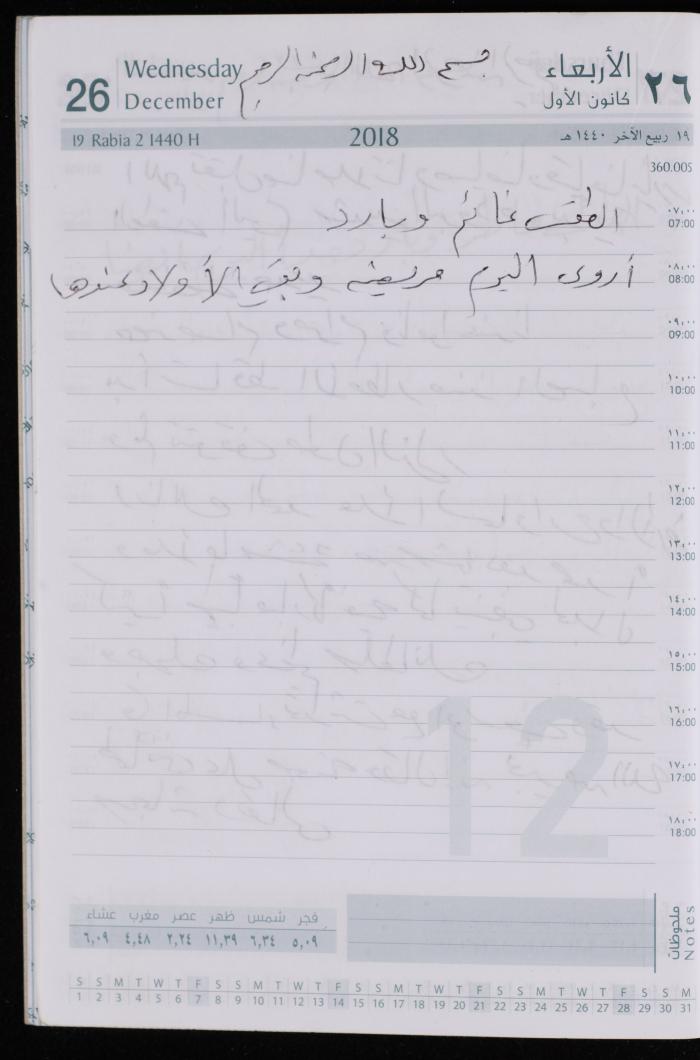 26
Wednesday
December
بسم الله الرحمن الرحيم
الأربعاء
كانون الأول
٢٦
19 Rabia 2 1440 H
2018
١٩ ربيع الآخر ١٤٤٠ هـ
360.005
الطقس غائم وبارد
٠٧,٠٠
07:00
أروى اليوم مريضة وبقي الأولاد عندها
٠٨,٠٠
08:00
٠٩,٠٠
09:00
١٠,٠٠
10:00
١١,٠٠
11:00
١٢,٠٠
12:00
١٣,٠٠
13:00
١٤,٠٠
14:00
١٥,٠٠
15:00
١٦,٠٠
16:00
١٧,٠٠
17:00
١٨,٠٠
18:00
12
فجر شمس ظهر عصر مغرب عشاء
٥,٠٩ ٦,٣٤ ١١,٣٩ ٢,٢٤ ٤,٤٨ ٦,٠٩
ملحوظات
Notes
S S M T W T F S S M T W T F S S M T W T F S S M T W T F S S M
1 2 3 4 5 6 7 8 9 10 11 12 13 14 15 16 17 18 19 20 21 22 23 24 25 26 27 28 29 30 31